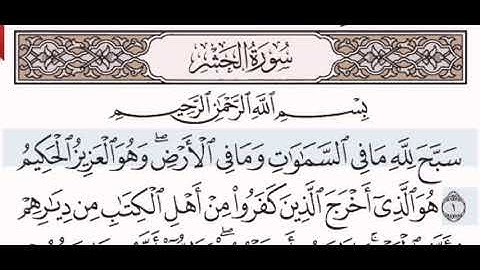 سُورَةُ الْحَشْرِ
بِسْمِ اللَّهِ الرَّحْمَٰنِ الرَّحِيمِ
سَبَّحَ لِلَّهِ مَا فِي السَّمَٰوَٰتِ وَمَا فِي الْأَرْضِ ۖ وَهُوَ الْعَزِيزُ الْحَكِيمُ
١ هُوَ الَّذِيٓ أَخْرَجَ الَّذِينَ كَفَرُوا۟ مِنْ أَهْلِ الْكِتَٰبِ مِن دِيَٰرِهِمْ